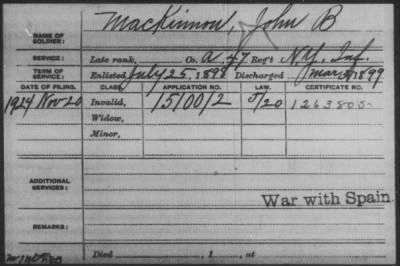 NAME OF SOLDIER: MacKinnon, John B
SERVICE: Late rank, Co. A. 47 Reg't N.Y. Inf.
TERM OF SERVICE: Enlisted July 25, 1898 Discharged Mar 1899
DATE OF FILING. CLASS. APPLICATION NO. LAW. CERTIFICATE NO.
1924 Nov 20 Invalid, 1510012 5/20 1263805-
Widow,
Minor,
ADDITIONAL SERVICES:
War with Spain.
REMARKS:
Died , 1 , at